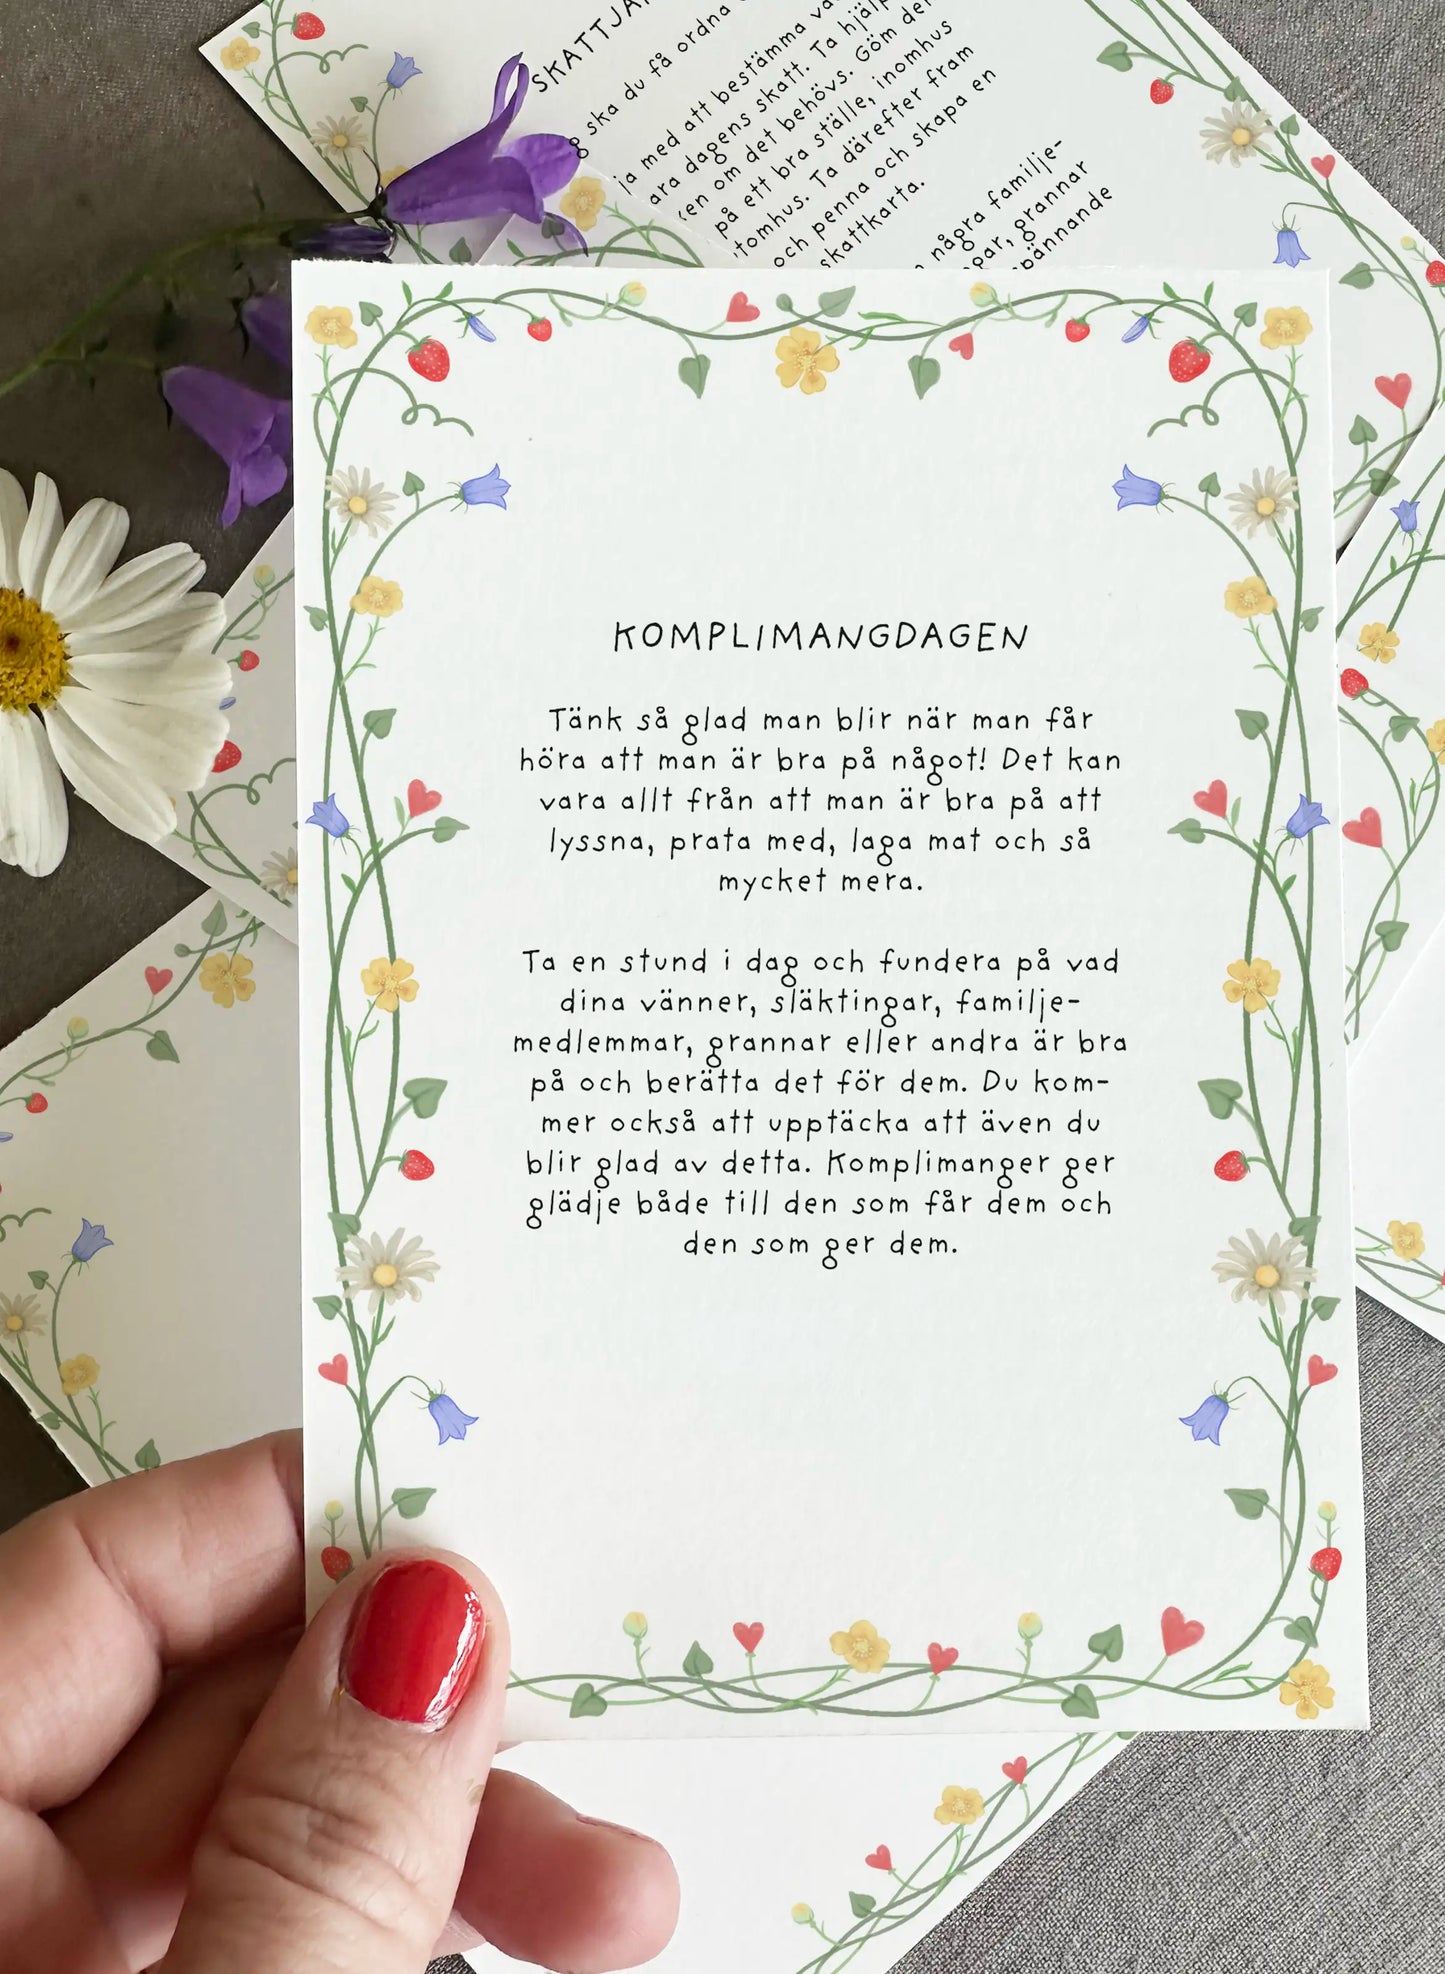 SKATTJA
ska du få ordna
ja med att bestämma va
ara dagens skatt. Ta hjälp
ken om det behövs. Göm de
på ett bra ställe, inomhus
tomhus. Ta därefter fram
och penna och skapa en
skattkarta.
några familje-
gar, grannar
pännande
KOMPLIMANGDAGEN
Tänk så glad man blir när man får
höra att man är bra på något! Det kan
vara allt från att man är bra på att
lyssna, prata med, laga mat och så
mycket mera.
Ta en stund i dag och fundera på vad
dina vänner, släktingar, familje-
medlemmar, grannar eller andra är bra
på och berätta det för dem. Du kom-
mer också att upptäcka att även du
blir glad av detta. Komplimanger ger
glädje både till den som får dem och
den som ger dem.